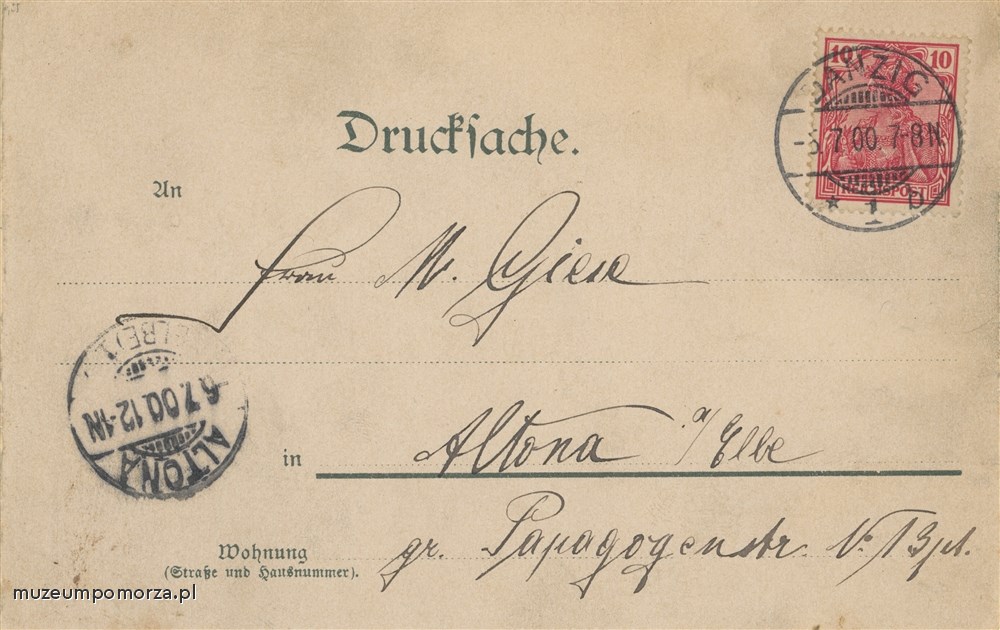 10 10
DANZIG
-5.7.00.7-8N.
REICHSPOST
* 1 D
Drucksache.
An
Frau M. Giese
ALTONA
6.7.00.12-1N
(ELBE) 1
in Altona a/Elbe
gr. Papagoyenstr. N. 13 pt.
Wohnung
(Straße und Hausnummer).
muzeumpomorza.pl